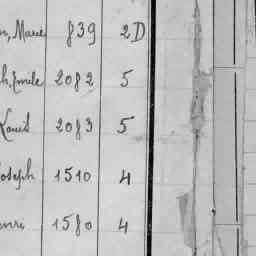 n, Marie 839 2D
h, Emile 2082 5
Louis 2083 5
Joseph 1510 4
enri 1580 4